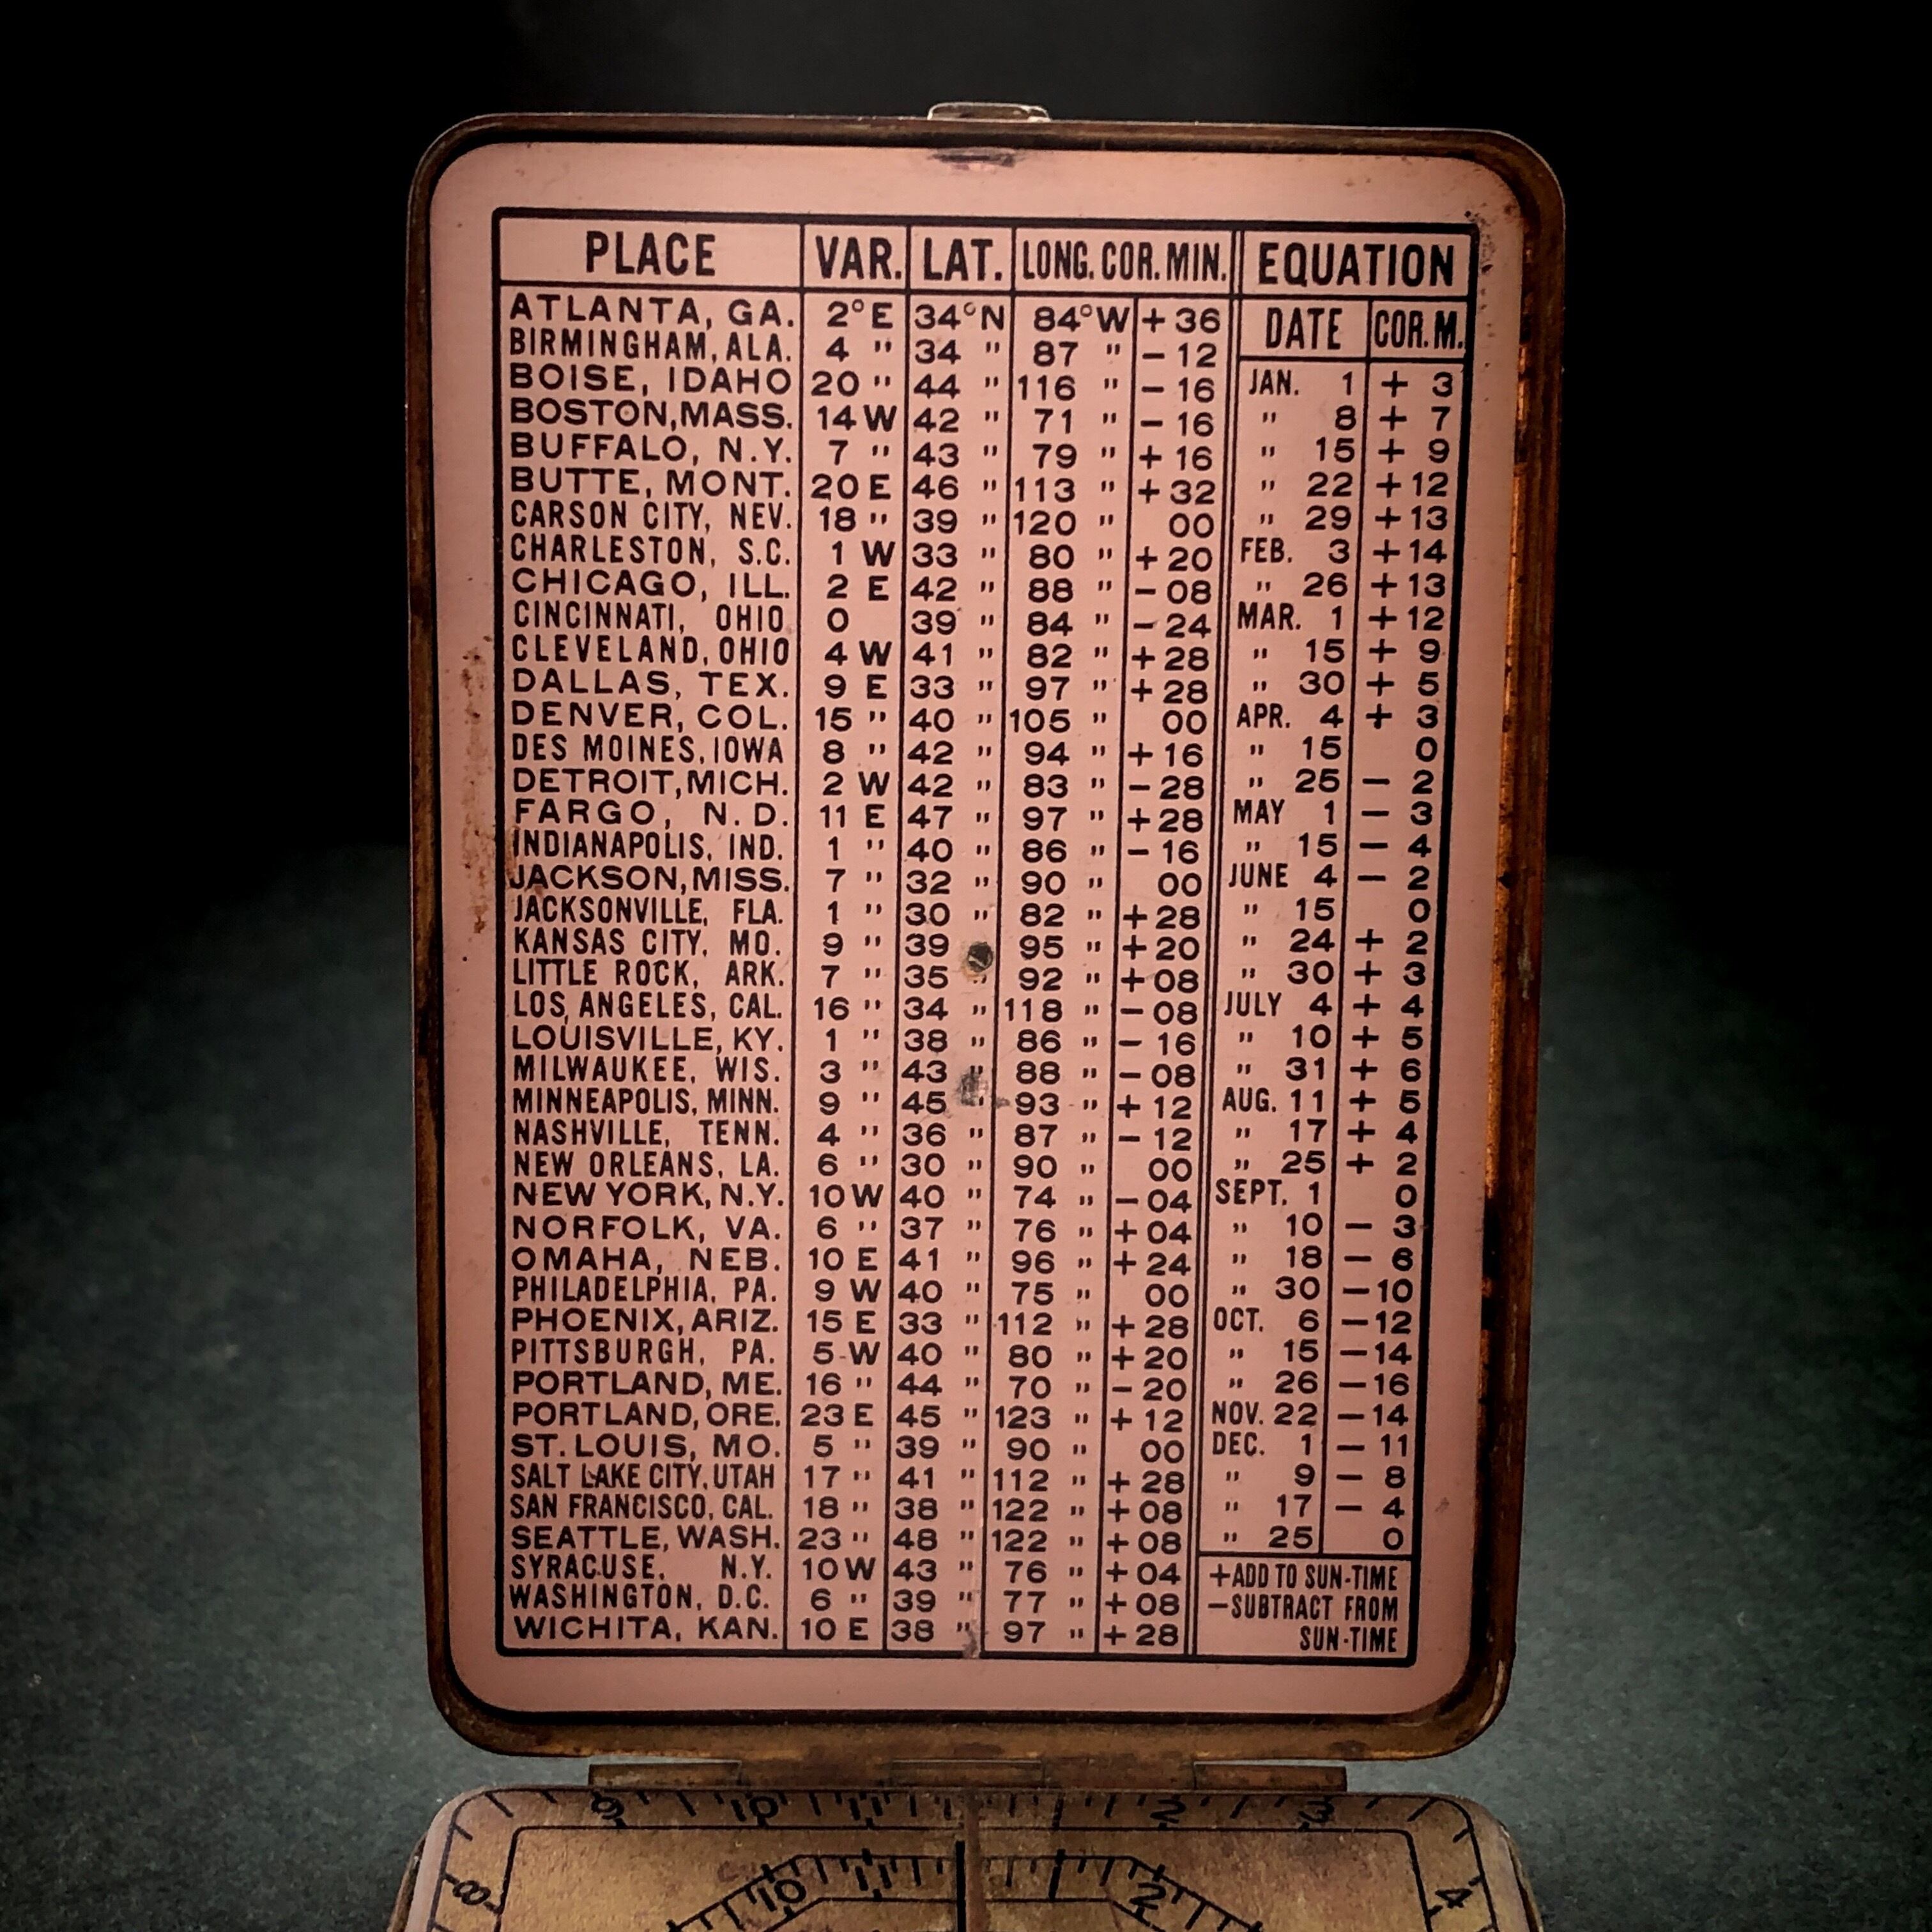 PLACE VAR. LAT. LONG. COR. MIN. EQUATION
ATLANTA, GA. 2° E 34° N 84° W + 36 DATE COR. M.
BIRMINGHAM, ALA. 4 " 34 " 87 " - 12
BOISE, IDAHO 20 " 44 " 116 " - 16 JAN. 1 + 3
BOSTON, MASS. 14 W 42 " 71 " - 16 " 8 + 7
BUFFALO, N.Y. 7 " 43 " 79 " + 16 " 15 + 9
BUTTE, MONT. 20 E 46 " 113 " + 32 " 22 + 12
CARSON CITY, NEV. 18 " 39 " 120 " 00 " 29 + 13
CHARLESTON, S.C. 1 W 33 " 80 " + 20 FEB. 3 + 14
CHICAGO, ILL. 2 E 42 " 88 " - 08 " 26 + 13
CINCINNATI, OHIO 0 39 " 84 " - 24 MAR. 1 + 12
CLEVELAND, OHIO 4 W 41 " 82 " + 28 " 15 + 9
DALLAS, TEX. 9 E 33 " 97 " + 28 " 30 + 5
DENVER, COL. 15 " 40 " 105 " 00 APR. 4 + 3
DES MOINES, IOWA 8 " 42 " 94 " + 16 " 15 0
DETROIT, MICH. 2 W 42 " 83 " - 28 " 25 - 2
FARGO, N. D. 11 E 47 " 97 " + 28 MAY 1 - 3
INDIANAPOLIS, IND. 1 " 40 " 86 " - 16 " 15 - 4
JACKSON, MISS. 7 " 32 " 90 " 00 JUNE 4 - 2
JACKSONVILLE, FLA. 1 " 30 " 82 " + 28 " 15 0
KANSAS CITY, MO. 9 " 39 95 " + 20 " 24 + 2
LITTLE ROCK, ARK. 7 " 35 " 92 " + 08 " 30 + 3
LOS ANGELES, CAL. 16 " 34 " 118 " - 08 JULY 4 + 4
LOUISVILLE, KY. 1 " 38 " 86 " - 16 " 10 + 5
MILWAUKEE, WIS. 3 " 43 " 88 " - 08 " 31 + 6
MINNEAPOLIS, MINN. 9 " 45 " 93 " + 12 AUG. 11 + 5
NASHVILLE, TENN. 4 " 36 " 87 " - 12 " 17 + 4
NEW ORLEANS, LA. 6 " 30 " 90 " 00 " 25 + 2
NEW YORK, N.Y. 10 W 40 " 74 " - 04 SEPT. 1 0
NORFOLK, VA. 6 " 37 " 76 " + 04 " 10 - 3
OMAHA, NEB. 10 E 41 " 96 " + 24 " 18 - 6
PHILADELPHIA, PA. 9 W 40 " 75 " 00 " 30 - 10
PHOENIX, ARIZ. 15 E 33 " 112 " + 28 OCT. 6 - 12
PITTSBURGH, PA. 5 W 40 " 80 " + 20 " 15 - 14
PORTLAND, ME. 16 " 44 " 70 " - 20 " 26 - 16
PORTLAND, ORE. 23 E 45 " 123 " + 12 NOV. 22 - 14
ST. LOUIS, MO. 5 " 39 " 90 " 00 DEC. 1 - 11
SALT LAKE CITY, UTAH 17 " 41 " 112 " + 28 " 9 - 8
SAN FRANCISCO, CAL. 18 " 38 " 122 " + 08 " 17 - 4
SEATTLE, WASH. 23 " 48 " 122 " + 08 " 25 0
SYRACUSE, N.Y. 10 W 43 " 76 " + 04 + ADD TO SUN-TIME
WASHINGTON, D.C. 6 " 39 " 77 " + 08 - SUBTRACT FROM
WICHITA, KAN. 10 E 38 " 97 " + 28 SUN-TIME
9 10 11 1 2 3
8 10 11 1 2 4